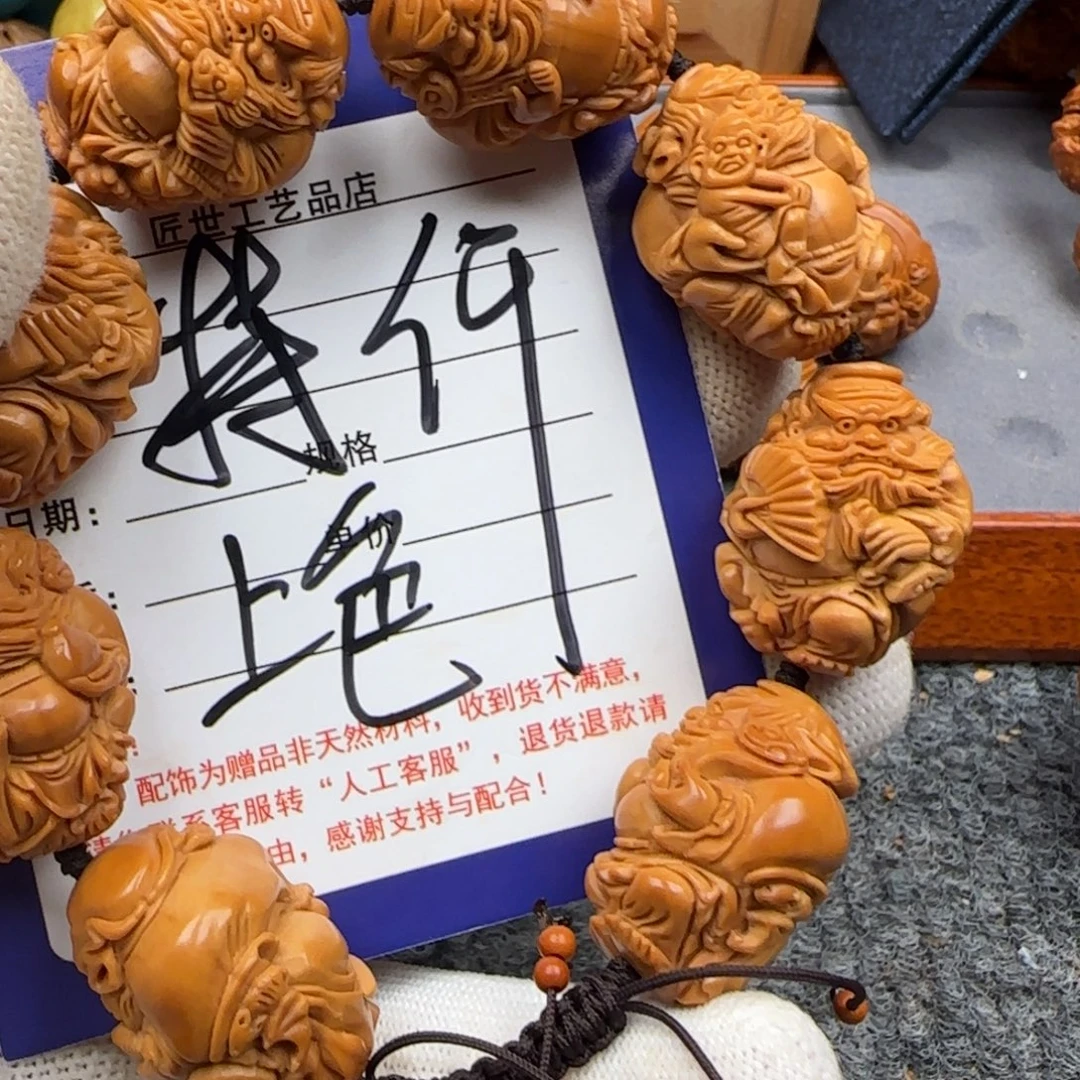 匠世工艺品店
特
规格
日期：
单价
上色
配饰为赠品非天然材料，收到货不满意，
系客服转“人工客服”，退货退款请
由，感谢支持与配合！